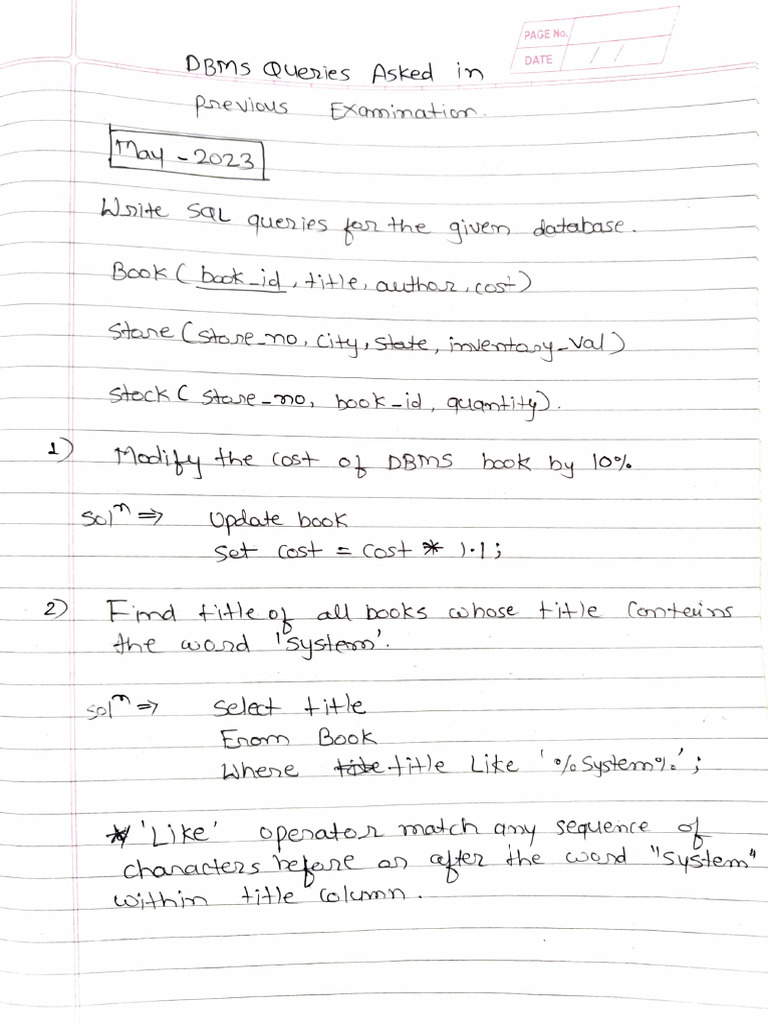 PAGE No.
DATE / /
DBMS Queries Asked in
Previous Examination.
May - 2023
Write SQL queries for the given database.
Book ( book_id, title, author, cost)
Store (store_no, city, state, inventory_val)
Stock ( store_no, book_id, quantity).
1) Modify the cost of DBMS book by 10%
Solⁿ ⇒ Update book
Set cost = cost * 1.1;
2) Find title of all books whose title conteins
the word 'system'.
Solⁿ ⇒ Select title
From Book
Where title Like '%System%';
* 'Like' operator match any sequence of
characters before or after the word "system"
within title column.